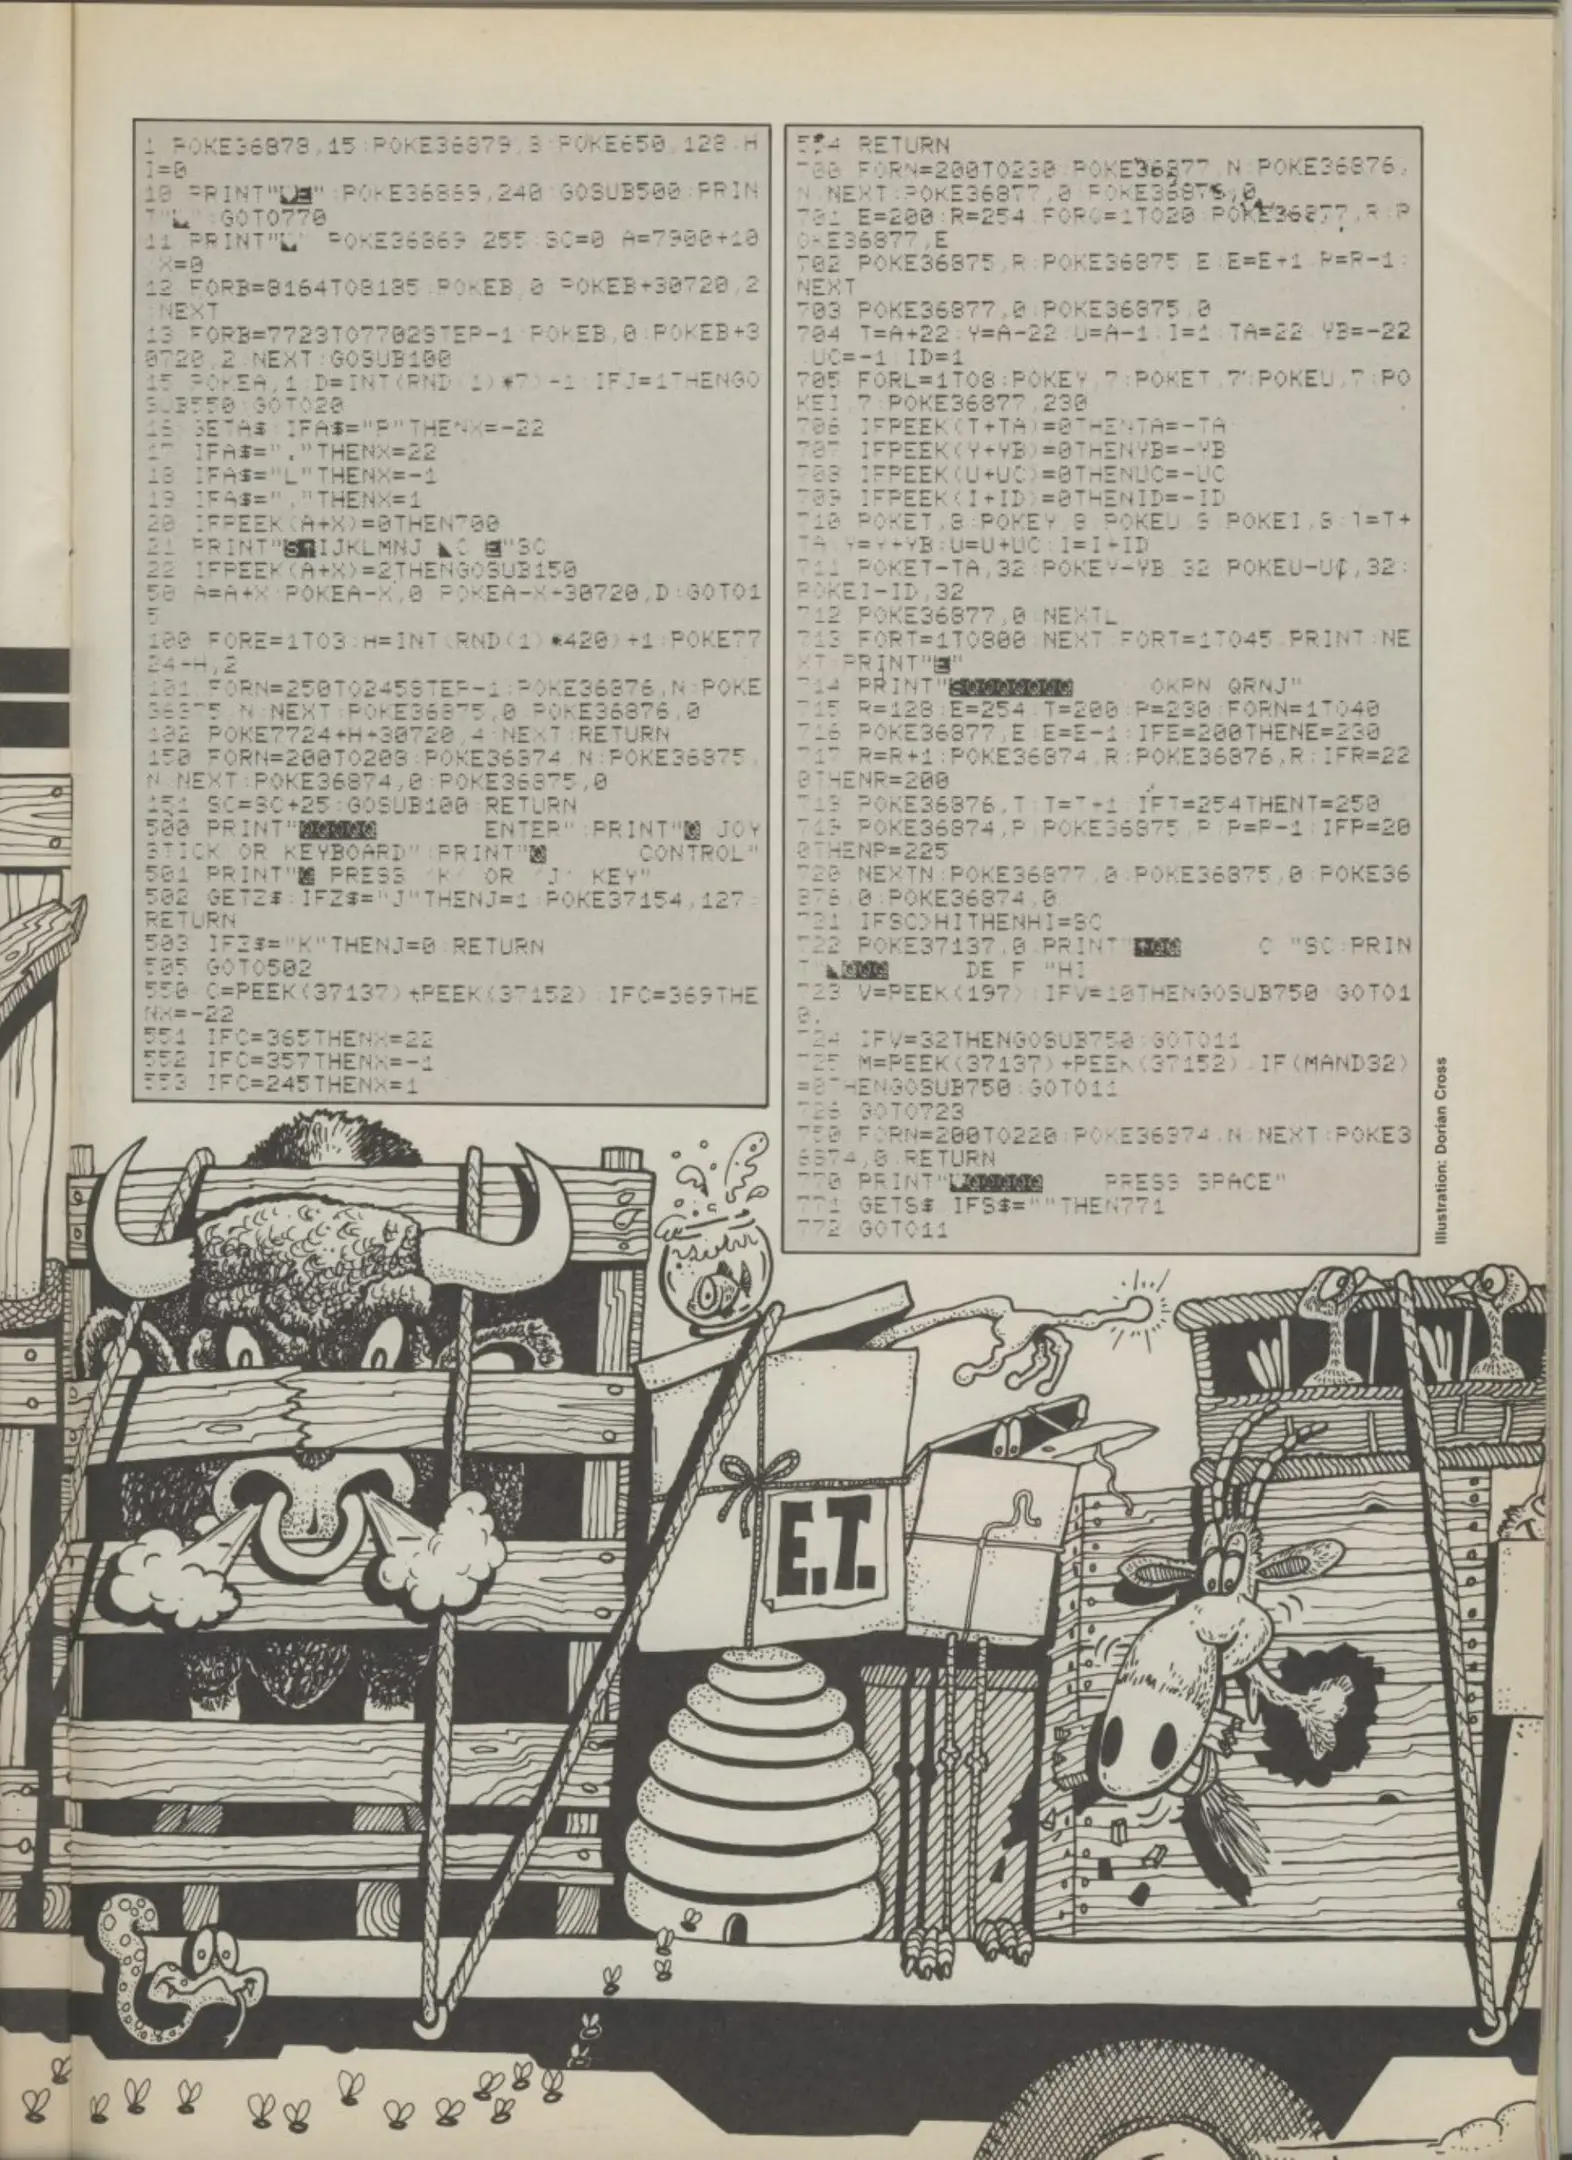 1 POKE36878,15:POKE36879,8:POKE650,128:H
I=0
10 PRINT"":POKE36869,240:GOSUB500:PRIN
T"":GOTO770
11 PRINT"":POKE36869,255:SC=0:A=7900+10
:X=0
12 FORB=8164TO8185:POKEB,0:POKEB+30720,2
:NEXT
13 FORB=7723TO7702STEP-1:POKEB,0:POKEB+3
0720,2:NEXT:GOSUB100
15 POKEA,1:D=INT(RND(1)*7)-1:IFJ=1THENGO
SUB550:GOTO20
16 GETA$:IFA$="P"THENX=-22
17 IFA$="."THENX=22
18 IFA$="L"THENX=-1
19 IFA$=","THENX=1
20 IFPEEK(A+X)=0THEN700
21 PRINT"IJKLMNJ C "SC
22 IFPEEK(A+X)=2THENGOSUB150
50 A=A+X:POKEA-X,0:POKEA-X+30720,D:GOTO1
5
100 FORE=1TO3:H=INT(RND(1)*420)+1:POKE77
24+H,2
101 FORN=250TO245STEP-1:POKE36876,N:POKE
36875,N:NEXT:POKE36875,0:POKE36876,0
102 POKE7724+H+30720,4:NEXT:RETURN
150 FORN=200TO208:POKE36874,N:POKE36875,
N:NEXT:POKE36874,0:POKE36875,0
151 SC=SC+25:GOSUB100:RETURN
500 PRINT"QQQQQ ENTER":PRINT"Q JOY
STICK OR KEYBOARD":PRINT"Q CONTROL"
501 PRINT"Q PRESS 'K' OR 'J' KEY"
502 GETZ$:IFZ$="J"THENJ=1:POKE37154,127:
RETURN
503 IFZ$="K"THENJ=0:RETURN
505 GOTO502
550 C=PEEK(37137)+PEEK(37152):IFC=369THE
NX=-22
551 IFC=365THENX=22
552 IFC=357THENX=-1
553 IFC=245THENX=1
554 RETURN
700 FORN=200TO230:POKE36877,N:POKE36876,
N:NEXT:POKE36877,0:POKE36876,0
701 E=200:R=254:FORQ=1TO20:POKE36877,R:P
OKE36877,E
702 POKE36875,R:POKE36875,E:E=E+1:R=R-1:
NEXT
703 POKE36877,0:POKE36875,0
704 T=A+22:Y=A-22:U=A-1:I=1:TA=22:YB=-22
:UC=-1:ID=1
705 FORL=1TO8:POKEY,7:POKET,7:POKEU,7:PO
KEI,7:POKE36877,230
706 IFPEEK(T+TA)=0THENTA=-TA
707 IFPEEK(Y+YB)=0THENYB=-YB
708 IFPEEK(U+UC)=0THENUC=-UC
709 IFPEEK(I+ID)=0THENID=-ID
710 POKET,8:POKEY,8:POKEU,8:POKEI,8:T=T+
TA:Y=Y+YB:U=U+UC:I=I+ID
711 POKET-TA,32:POKEY-YB,32:POKEU-UC,32:
POKEI-ID,32
712 POKE36877,0:NEXTL
713 FORT=1TO800:NEXT:FORT=1TO45:PRINT:NE
XT:PRINT"E"
714 PRINT"SQQQQQQQQ OKPN QRNJ"
715 R=128:E=254:T=200:P=230:FORN=1TO40
716 POKE36877,E:E=E-1:IFE=200THENE=230
717 R=R+1:POKE36874,R:POKE36876,R:IFR=22
0THENR=200
718 POKE36876,T:T=T+1:IFT=254THENT=250
719 POKE36874,P:POKE36875,P:P=P-1:IFP=20
0THENP=225
720 NEXTN:POKE36877,0:POKE36875,0:POKE36
876,0:POKE36874,0
721 IFSC>HITHENHI=SC
722 POKE37137,0:PRINT"QQ C "SC:PRIN
T"QQQ DE F "HI
723 V=PEEK(197):IFV=10THENGOSUB750:GOTO1
0
724 IFV=32THENGOSUB750:GOTO11
725 M=PEEK(37137)+PEEK(37152):IF(MAND32)
=0THENGOSUB750:GOTO11
726 GOTO723
750 FORN=200TO220:POKE36874,N:NEXT:POKE3
6874,0:RETURN
770 PRINT"QQQQQ PRESS SPACE"
771 GETS$:IFS$=""THEN771
772 GOTO11
Illustration: Dorian Cross
E.T.